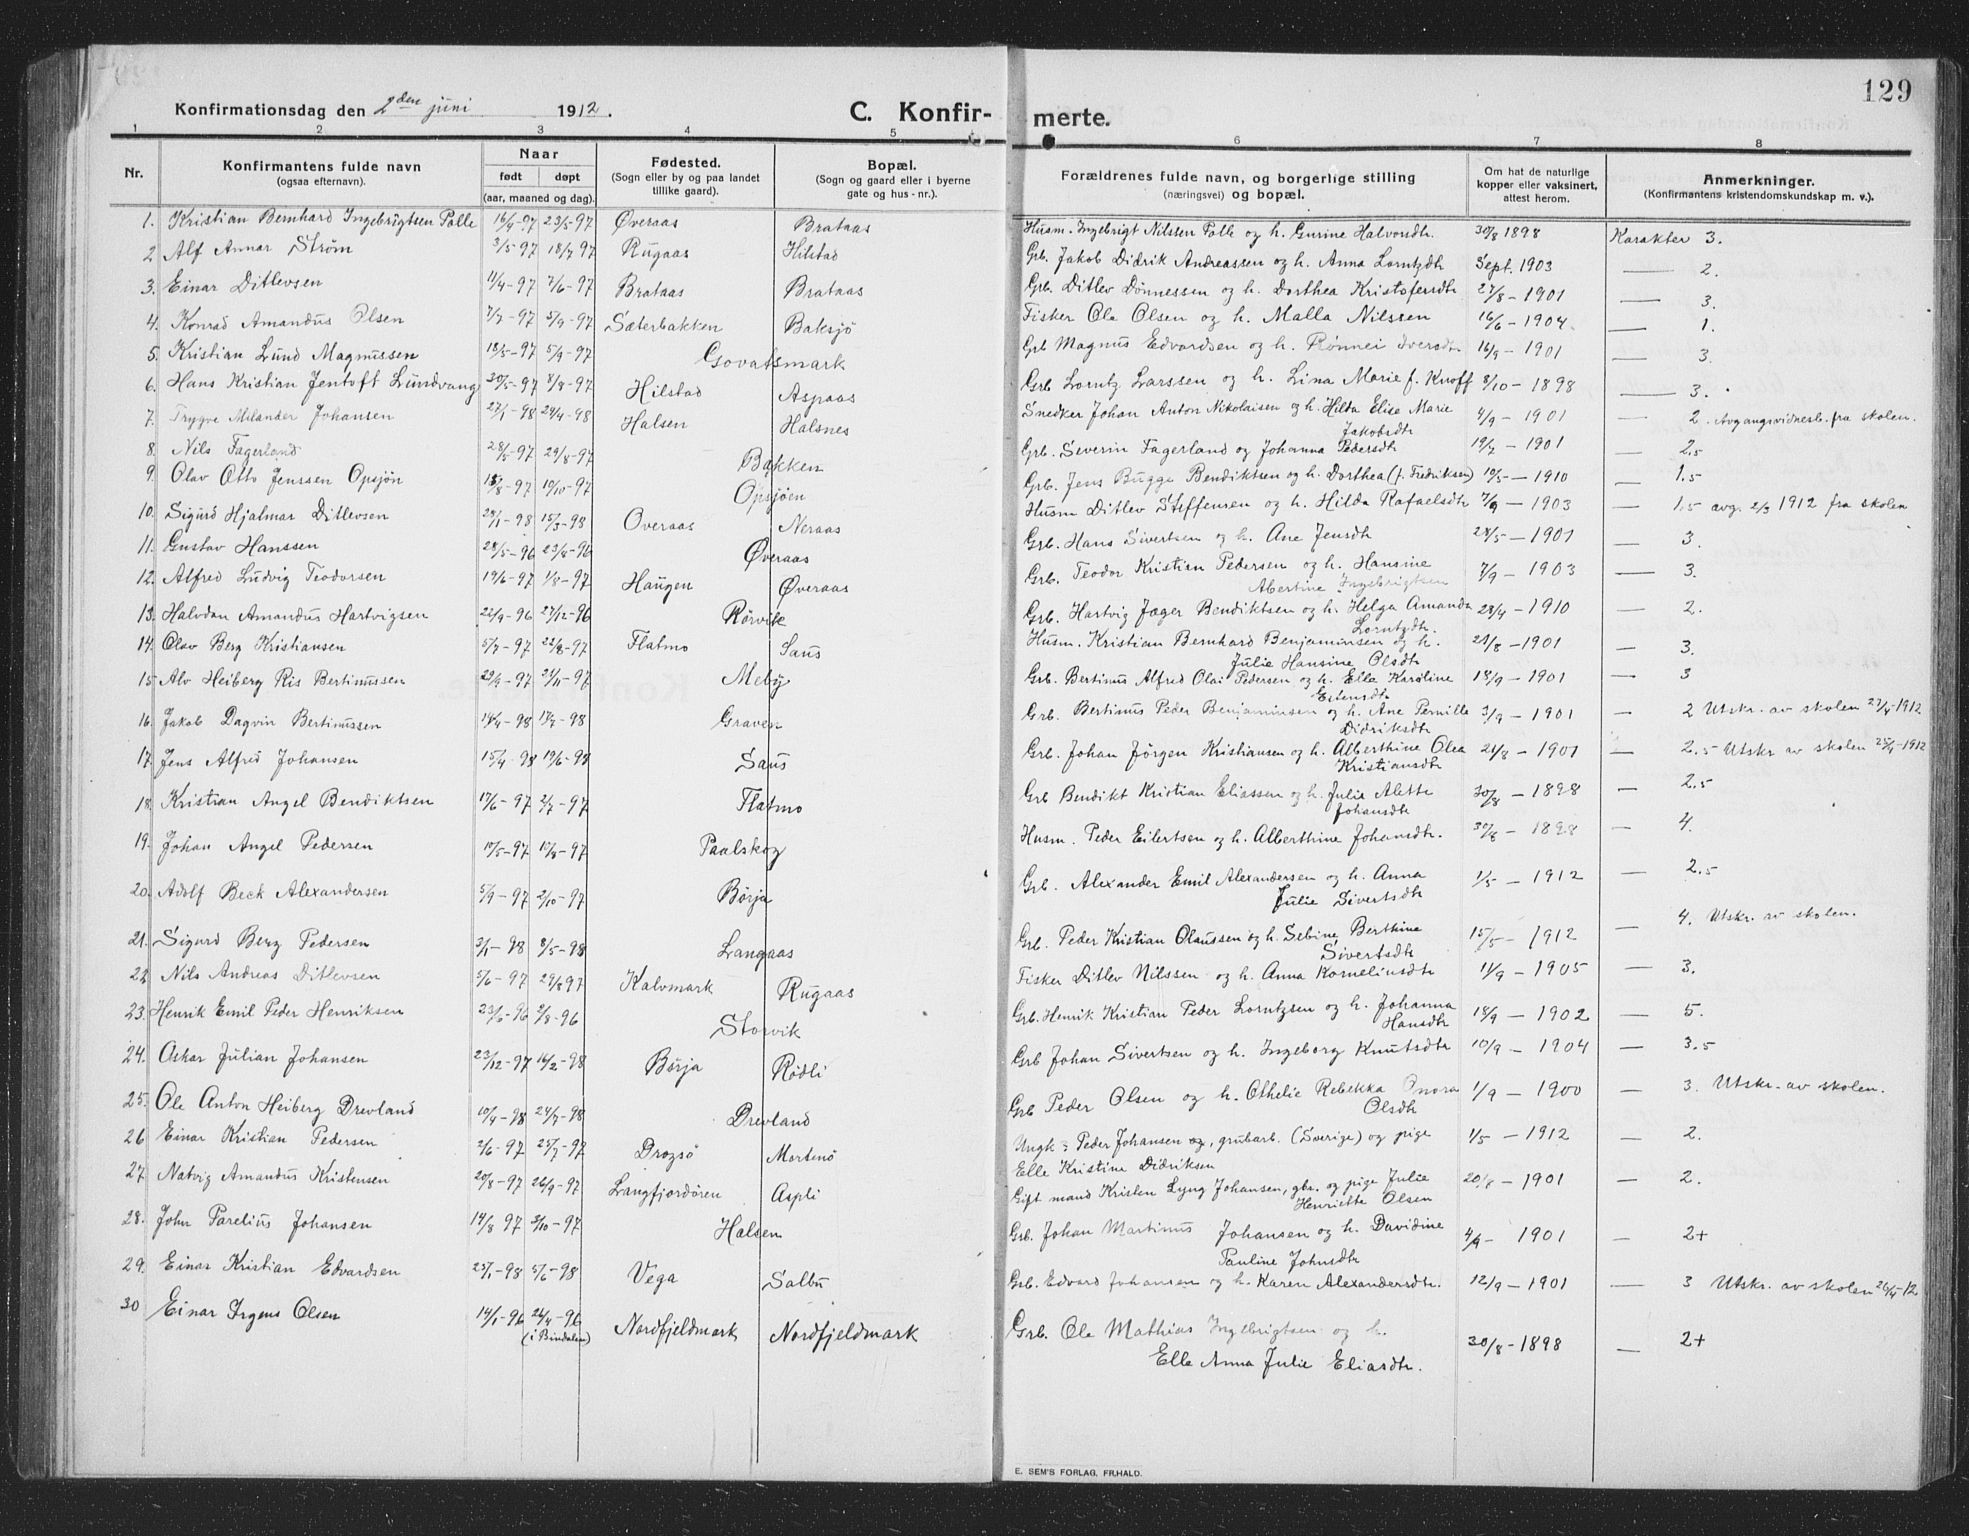 129
Konfirmationsdag den 2den juni 1912.
C. Konfir- merte.
1 2 3 4 5 6 7 8
Nr.
Konfirmantens fulde navn
(ogsaa efternavn).
Naar
født døpt
(aar, maaned og dag).
Fødested.
(Sogn eller by og paa landet
tillike gaard).
Bopæl.
(Sogn og gaard eller i byerne
gate og hus-nr.).
Forældrenes fulde navn, og borgerlige stilling
(næringsvei) og bopæl.
Om hat de naturlige
kopper eller vaksinert,
attest herom.
Anmerkninger.
(Konfirmantens kristendomskundskap m. v.).
1. Kristian Bernhard Ingebrigtsen Palle 16/4-97 23/5-97 Øveraas Brataas Husm. Ingebrigt Nilsen Palle og h. Gurine Halvorsdtr. 30/8 1898 Karakter 3.
2 Alf Annar Strøm 3/5-97 18/7 97 Rugaas Hilstad Grb. Jakob Didrik Andreassen og h. Anna Lorntzdtr Sept. 1903 — 2.
3. Einar Ditlevsen 11/4-97 7/6-97 Brataas Brataas Grb. Ditlev Dønnessen og h. Dorthea Kristofersdtr 27/8-1901 — 3.
4. Konrad Amandus Olsen 7/7-97 5/9-97 Sæterbakken Baksjö Fisker Ole Olsen og h. Malla Nilssen 16/6-1904. — 1.
5. Kristian Lund Magnussen 18/5-97 5/9-97 Govatsmark Grb Magnus Edvardsen og h. Rønnei Iversdtr 16/9-1901 — 3.
6. Hans Kristian Jentoft Lundvang 30/5-97 8/8-97 Hilstad Aspaas Grb Lorntz Larssen og h. Lina Marie f. Knoff 8/10-1898 — 3.
7. Trygve Milander Johansen 27/1-98 24/4-98 Halsen Halsnes Snedker Johan Anton Nikolaisen og h. Hilda Elise Marie 4/9-1901 2. Avgangsvidnesb. fra skolen.
Jakobsdtr
8. Nils Fagerland 28/5-97 29/8-97 Bakken Grb. Severin Fagerland og Johanna Pedersdtr 19/7-1901 — 2.5
9. Olav Otto Jenssen Opsjön 18/8-97 19/10-97 Opsjøen Grb. Jens Bugge Bendiktsen og h. Dorthea (f. Fredriksen) 10/5-1910 — 1.5
10. Sigurd Hjalmar Ditlevsen 28/1-98 15/3-98 Overaas Neraas Husm Ditlev Steffensen og h. Hilda Rafaelsdtr 7/9-1903 — 1.5 avg. 2/3 1912 fra skolen
11. Gustav Hanssen 28/5-96 23/8-96 Øveraas Grb. Hans Sivertsen og h. Ane Jensdtr 28/5-1901 — 3.
12. Alfred Ludvig Teodorsen 19/6-97 1/8-97 Haugen Øveraas Grb. Teodor Kristian Pedersen og h. Hansine 7/9-1903 — 3.
Abertine Ingebrigtsen
13. Halvdan Amandus Hartvigsen 22/9-96 27/12-96 Rørvik Grb. Hartvig Jæger Bendiktsen og h. Helga Amanda 28/4-1910 — 2.
Lorntzdtr.
14. Olav Berg Kristiansen 5/7-97 22/8-97 Flatmo Saus Husm. Kristian Bernhard Benjaminsen og h. 29/8-1901 — 3.
Julie Hansine Olsdtr
15 Alv Heiberg Ris Bertinussen 22/9-97 21/11-97 Meby Grb. Bertinus Alfred Olai Pedersen og h. Elle Karoline 18/9-1901 — 3
Estensdtr
16. Jakob Dagvin Bertinussen 14/4-98 17/7-98 Graven Grb. Bertinus Peder Benjaminsen og h. Ane Pernille 3/9-1901 — 2 Utskr. av skolen 27/4-1912
Didriksdtr
17. Jens Alfred Johansen 15/4-98 19/6-98 Saus Grb. Johan Jörgen Kristiansen og h. Alberthine Olea 21/8-1901 — 2.5 Utskr av skolen 25/4-1912
Kristiansdtr
18. Kristian Angel Bendiktsen 17/6-97 2/7-97 Flatmo Grb Bendikt Kristian Eliassen og h. Julie Alette 30/8-1898 — 2.5
Johansdtr
19. Johan Angel Pedersen 19/5-97 10/8-97 Paalskog Husm. Peder Eilertsen og h. Alberthine Johansdtr. 30/8-1898 — 4.
20. Adolf Beck Alexandersen 5/9-97 2/10-97 Børja Grb. Alexander Emil Alexandersen og h. Anna 1/5-1912 — 2.5
Julie Sivertsdtr
21. Sigurd Berg Pedersen 3/1-98 8/5-98 Langaas Grb. Peder Kristian Olaussen og h. Sebine Berthine 15/5-1912 — 4. Utskr. av skolen.
Sivertsdtr
22. Nils Andreas Ditlevsen 5/6-97 29/8 97 Kalvmark Rugaas Fisker Ditlev Nilssen og h. Anna Korneliusdtr 11/9-1905 — 3.
23. Henrik Emil Peder Henriksen 23/6-96 2/8-96 Storvik Grb. Henrik Kristian Peder Lorntzsen og h. Johanna 18/9-1902 — 5.
Hansdtr
24. Oskar Julian Johansen 23/12-97 16/2-98 Børja Rødli Grb Johan Sivertsen og h. Ingeborg Knutsdtr 10/9-1904 — 3.5
25. Ole Anton Heiberg Drevland 10/4-98 24/7-98 Drevland Grb Peder Olsen og h. Othelie Rebekka Onora 1/9-1900 — 3. Utskr. av skolen.
Olsdtr
26 Einar Kristian Pedersen 2/6-97 25/7-97 Drogsö Mortenö Ungk: Peder Johansen og, grubarb. (Sverige) og pige 1/5-1912 — 2.
Elle Kristine Didriksen
27. Natvig Amandus Kristensen 20/8-97 26/9-97 Langfjordören Aspli Gift mand Kristen Lyng Johansen, gbr. og pige Julie 20/8-1901 — 2.
Henriette Olsen
28. John Parelius Johansen 14/8 97 3/10-97 Halsen Grb. Johan Martinus Johansen og h. Davidine 4/9-1901 — 2+
Pauline Johnsdtr
29. Einar Kristian Edvardsen 25/1-98 5/6-98 Vega Salbu Grb. Edvard Johansen og h. Karen Alexandersdtr. 12/9-1901 — 3 Utskr. av skolen 26/4-12
30 Einar Irgens Olsen 14/1-96 26/4-96 Nordfjeldmark Nordfjeldmark Grb. Ole Mathias Ingebrigtsen og h. 30/8-1898 — 2+
(i Bindalen)
Elle Anna Julie Eliasdtr.
E. SEM'S FORLAG, FR.HALD.